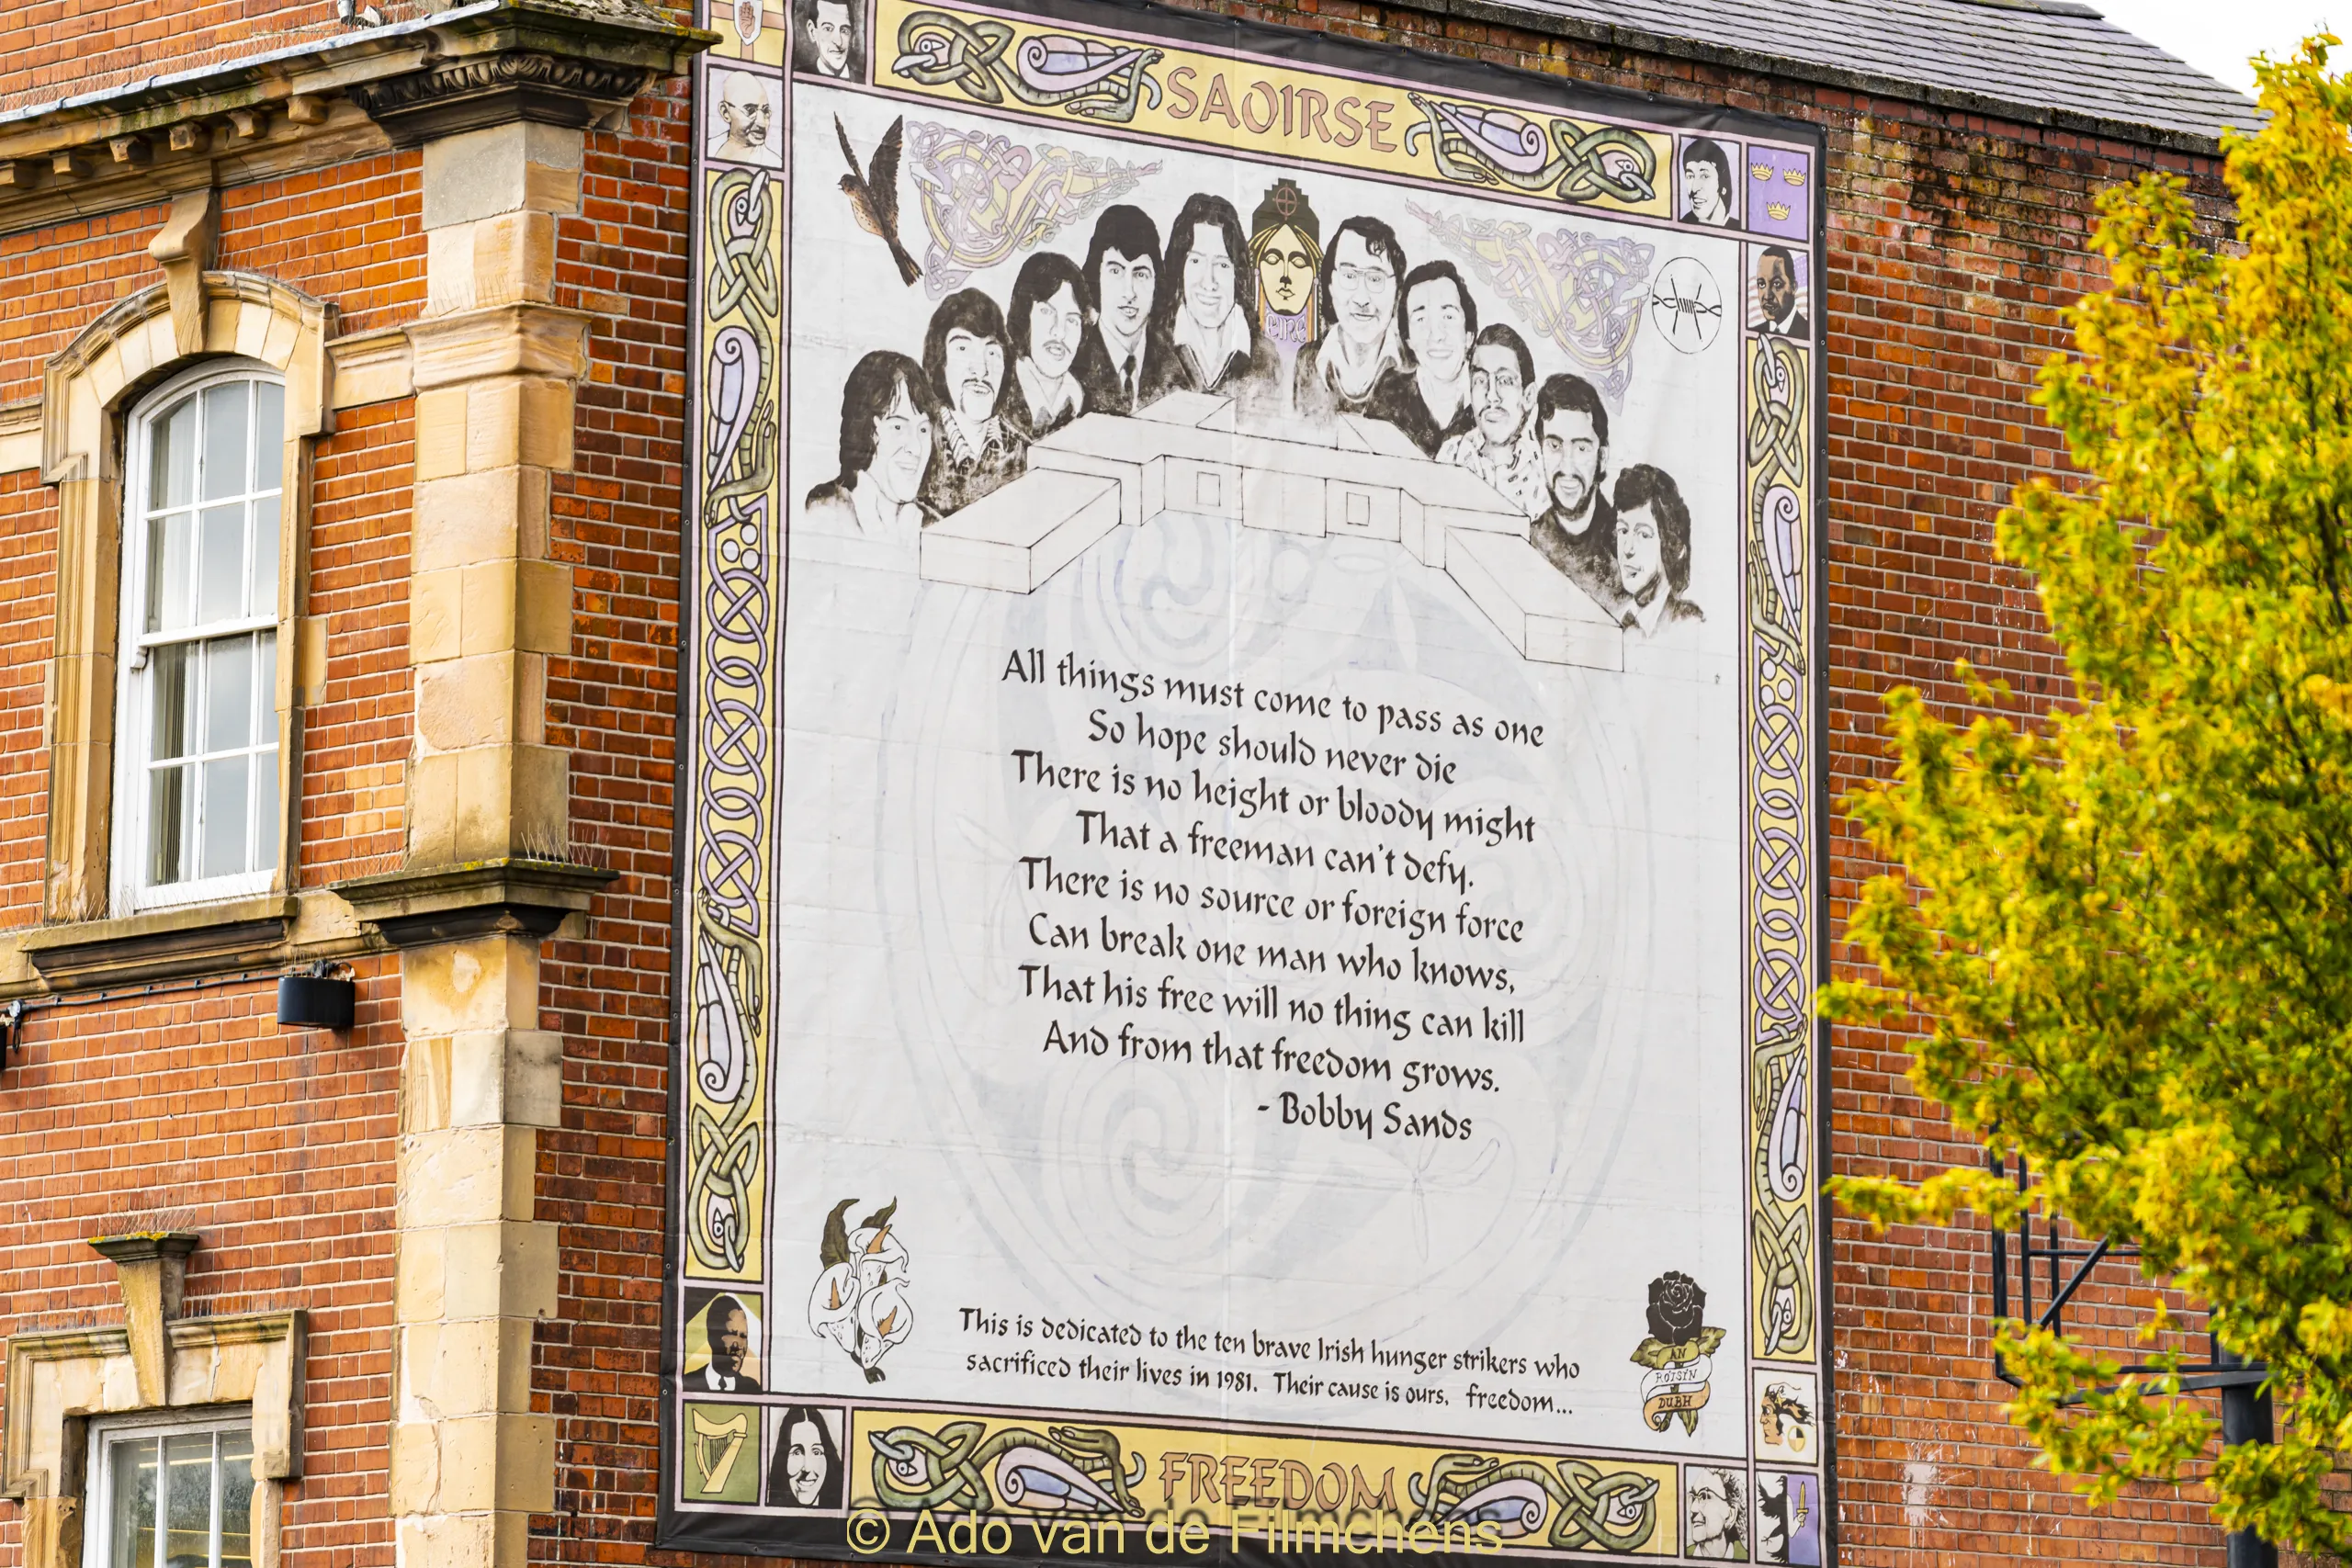 SAOIRSE
eire
All things must come to pass as one
So hope should never die
There is no height or bloody might
That a freeman can't defy.
There is no source or foreign force
Can break one man who knows,
That his free will no thing can kill
And from that freedom grows.
- Bobby Sands
This is dedicated to the ten brave Irish hunger strikers who
sacrificed their lives in 1981. Their cause is ours, freedom...
AN
RÓISÍN
DUBH
FREEDOM
© Ado van de Filmchens